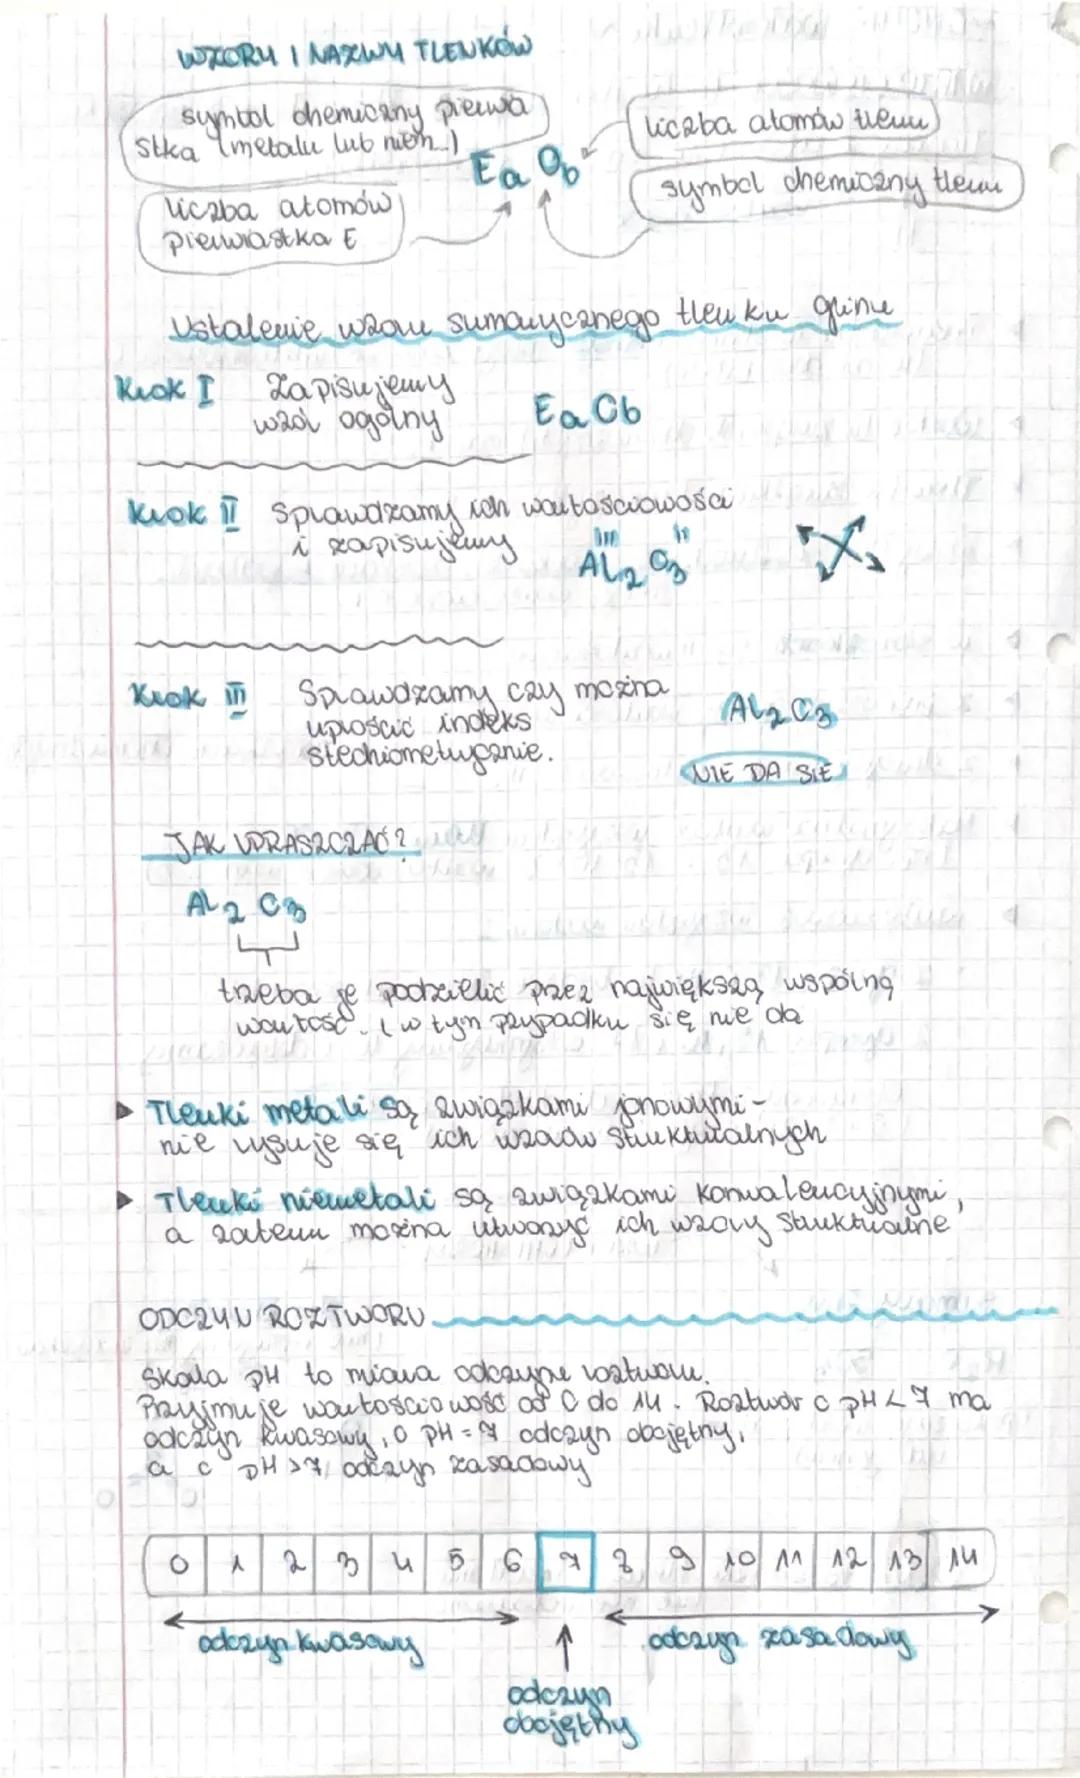 WZORY I NAZWY TLENKÓW
symbol chemiczny pierwa
stka (metalu lub niem...)
liczba atomów tlenu
Ea Ob
symbol chemiczny tlenu
liczba atomów
pierwiastka E
Ustalenie wzoru sumarycznego tlenku glinu
Krok I Zapisujemy
wzór ogólny
Ea Ob
Krok II Sprawdzamy ich wartościowości
i zapisujemy
III II
Al2 O3
Krok III Sprawdzamy czy można
uprościć indeks
stechiometrycznie.
Al2 O3
NIE DA SIĘ
JAK UPRASZCZAĆ?
Al2 O3
trzeba je podzielić przez największą wspólną
wartość. (w tym przypadku się nie da
Tlenki metali są związkami jonowymi -
nie rysuje się ich wzorów strukturalnych
Tlenki niemetali są związkami kowalencyjnymi,
a zatem można utworzyć ich wzory strukturalne
ODCZYN ROZTWORU
Skala pH to miara odczynu roztworu.
Przyjmuje wartościowość od 0 do 14. Roztwór o pH < 7 ma
odczyn kwasowy, o pH = 7 odczyn obojętny,
a o pH > 7, odczyn zasadowy
0 1 2 3 4 5 6 7 8 9 10 11 12 13 14
odczyn kwasowy
odczyn zasadowy
odczyn
obojętny